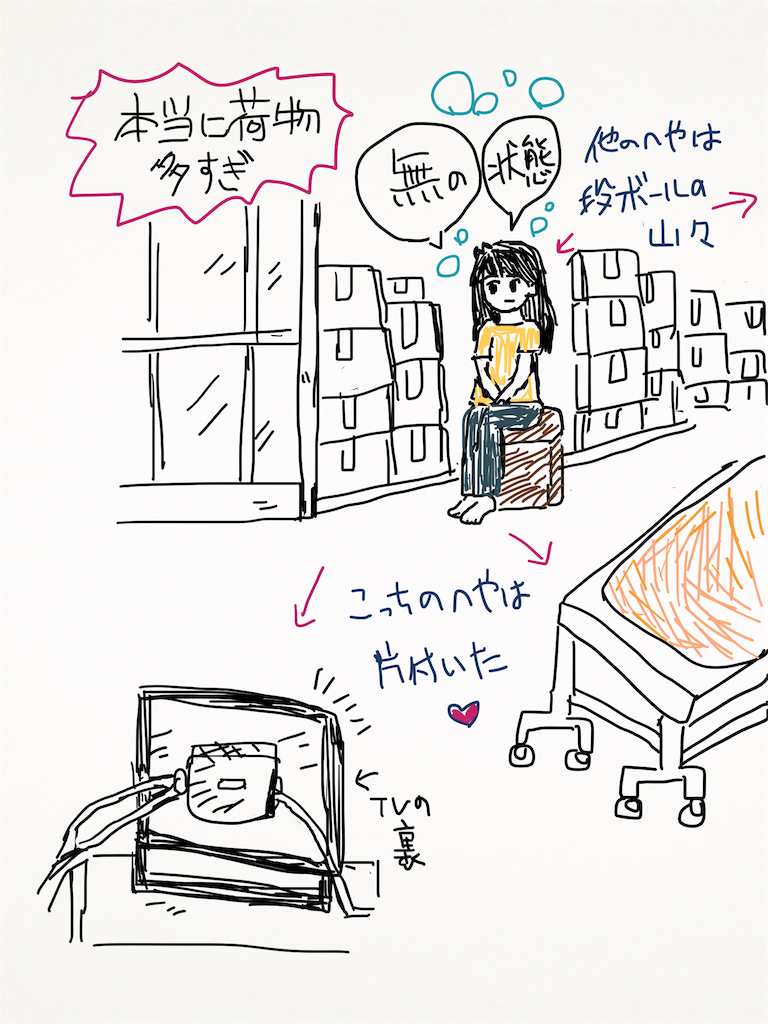 本当に荷物
多すぎ
無の
状態
他のへやは
段ボールの
山々
こっちのへやは
片付いた
TVの
裏